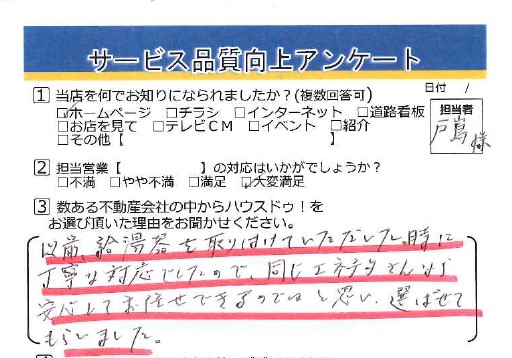 サービス品質向上アンケート
日付 /
1 当店を何でお知りになられましたか?(複数回答可)
☑ホームページ □チラシ □インターネット □道路看板
□お店を見て □テレビCM □イベント □紹介
□その他【 】
担当者
戸嶌様
2 担当営業【 】の対応はいかがでしょうか?
□不満 □やや不満 □満足 ☑大変満足
3 数ある不動産会社の中からハウスドゥ!を
お選び頂いた理由をお聞かせください。
以前、給湯器を取り付けていただいた時に
丁寧な対応でしたので、同じエネテクさんなら
安心してお任せできるのではと思い、選ばせて
もらいました。